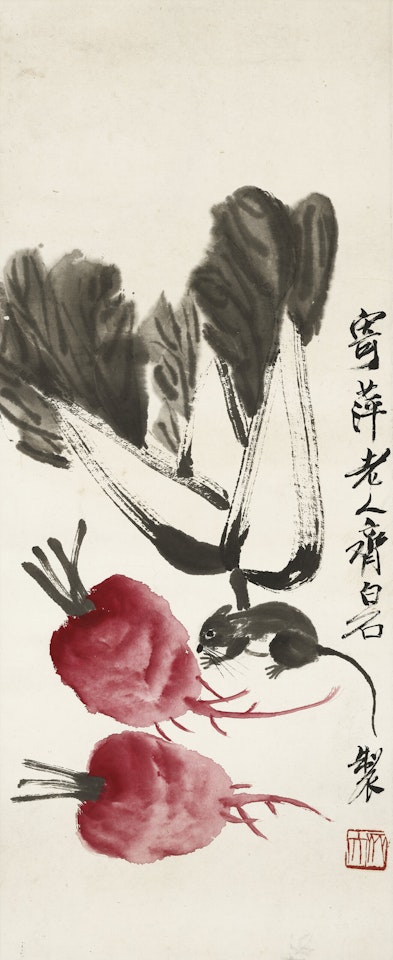 寄萍老人齊白石
製